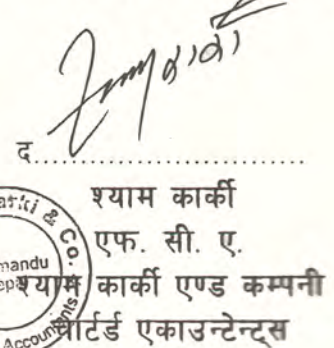 द..............................
श्याम कार्की
एफ. सी. ए.
श्याम कार्की एण्ड कम्पनी
चार्टर्ड एकाउन्टेन्ट्स